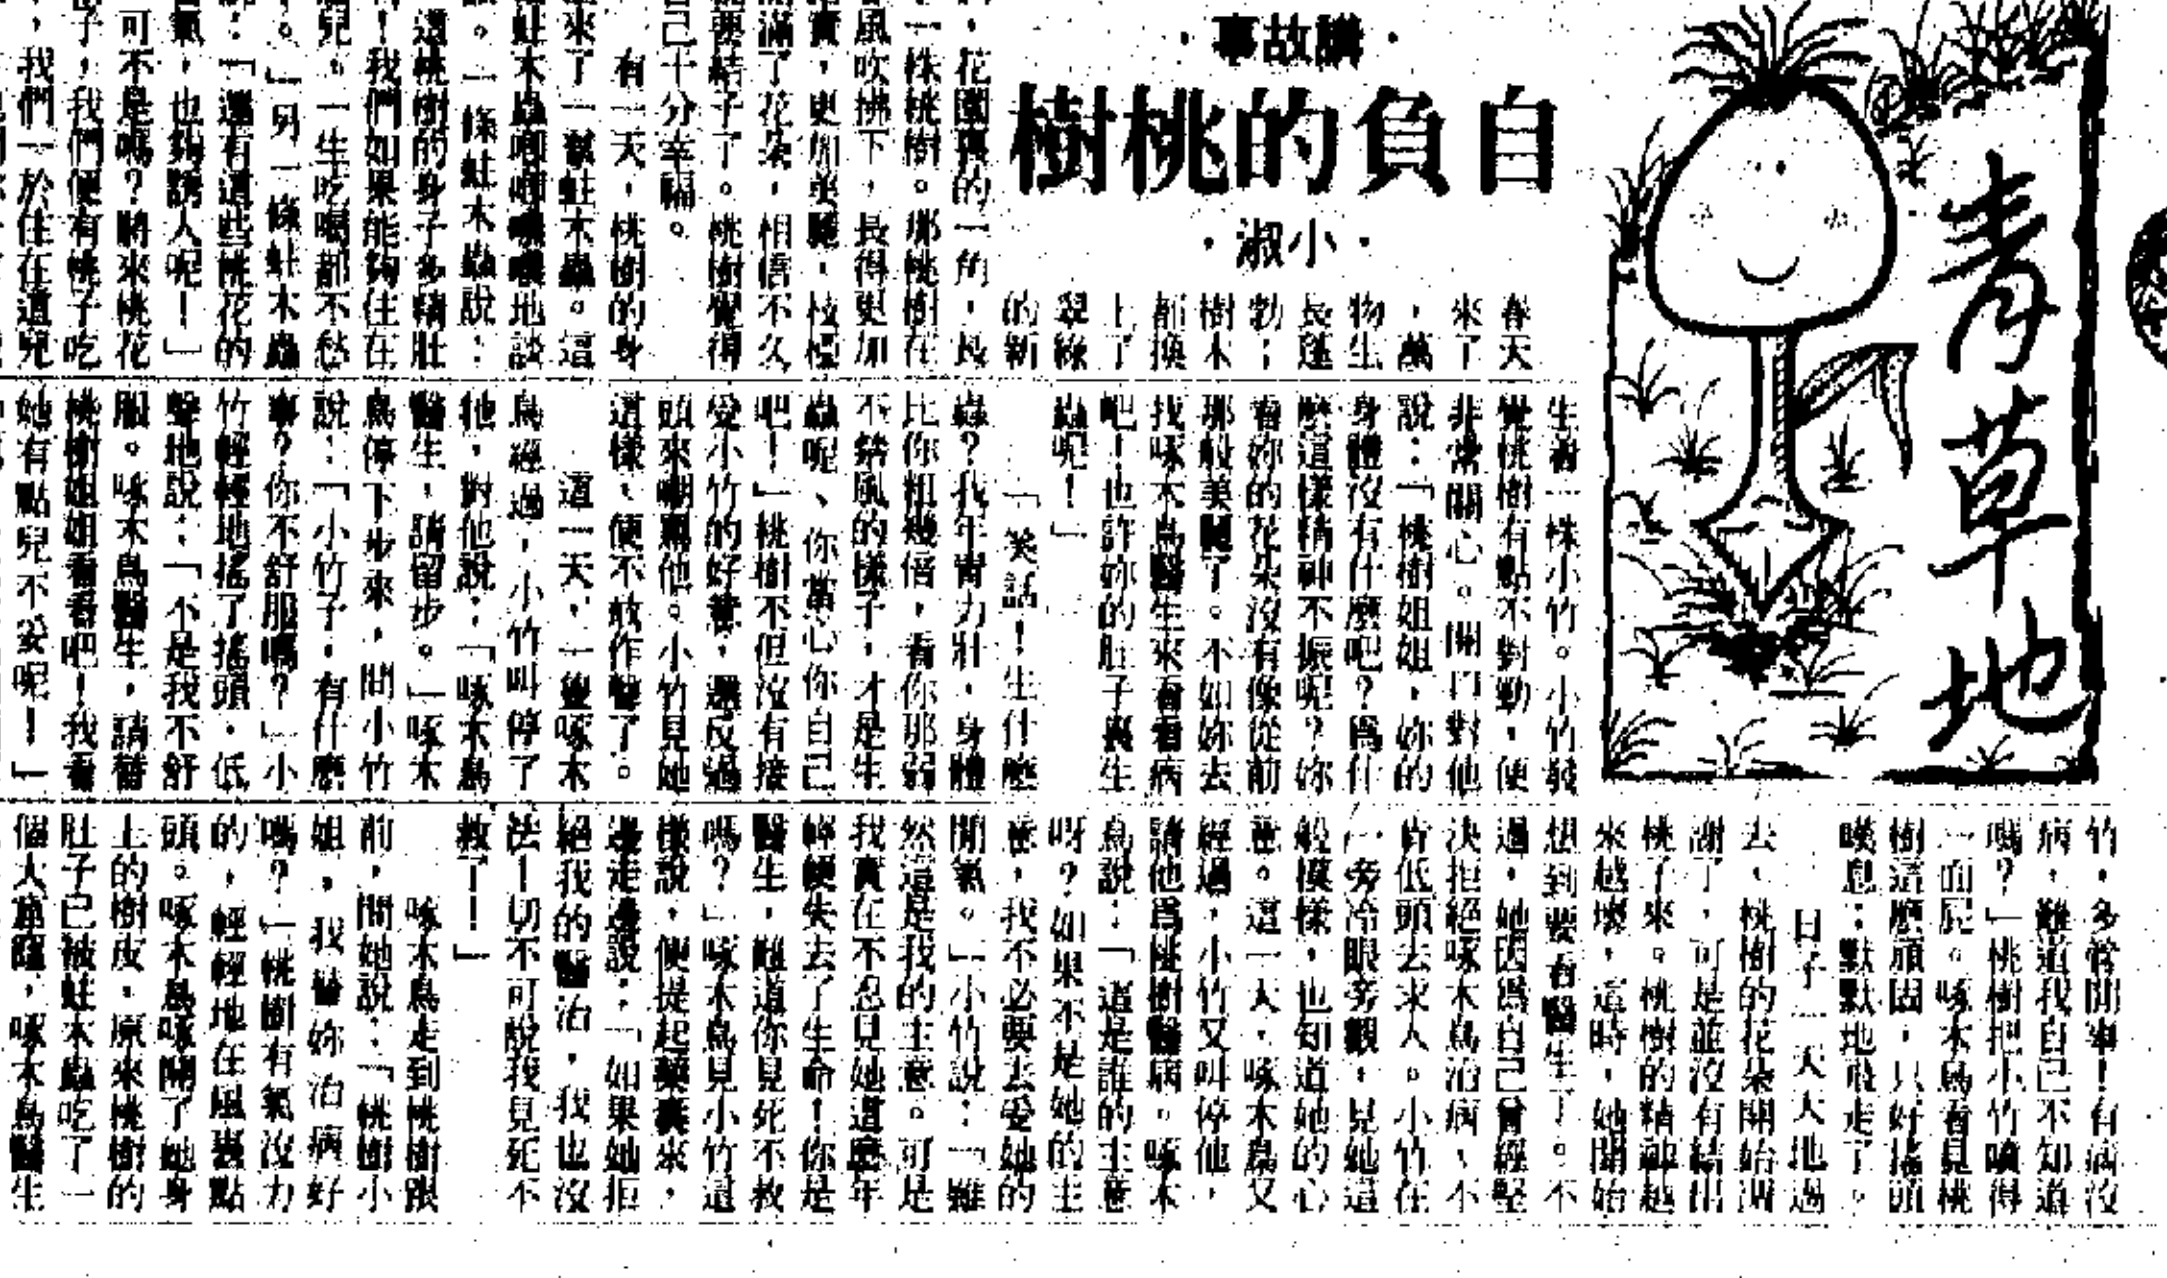 青草地
·講故事·
自負的桃樹
·小淑·
春天
來了
，萬
物生
長蓬
勃；
樹木
都換
上了
翠綠
的新
，花園裏的一角，長
一株桃樹。那桃樹在
風吹拂下，長得更加
實，更加美麗，枝椏
滿了花朵，相信不久
便要結子了。桃樹覺得
自己十分幸福。
有一天，桃樹的身
來了一羣蛀木蟲。這
蛀木蟲唧唧噥噥地談
。一條蛀木蟲說：
這桃樹的身子多精壯
！我們如果能夠住在
兒。一生吃喝都不愁
。」另一條蛀木蟲
：「還有這些桃花的
氣，也夠誘人呢！」
可不是嗎？將來桃花
子，我們便有桃子吃
，我們一於住在這兒
生着一株小竹。小竹發
覺桃樹有點不對勁，便
非常關心。開口對他
說：「桃樹姐姐，妳的
身體沒有什麼吧？爲什
麼這樣精神不振呢？妳
看妳的花朵沒有像從前
那般美麗了。不如妳去
找啄木鳥醫生來看看病
吧！也許妳的肚子裏生
蟲呢！」
「笑話！生什麼
蟲？我年青力壯，身體
比你粗幾倍，看你那弱
不禁風的樣子，才是生
蟲呢、你當心你自己
吧！」桃樹不但沒有接
受小竹的好意，還反過
頭來嘲罵他。小竹見她
這樣，便不敢作聲了。
這一天，一隻啄木
鳥經過，小竹叫停了
牠，對他說，「啄木鳥
醫生，請留步。」啄木
鳥停下步來，問小竹
說：「小竹子，有什麼
事？你不舒服嗎？」小
竹輕輕地搖了搖頭，低
聲地說：「不是我不舒
服。啄木鳥醫生，請替
桃樹姐姐看看吧！我看
她有點兒不妥呢！」
竹，多管閒事！有病沒
病，難道我自己不知道
嗎？」桃樹把小竹噴得
一面屁。啄木鳥看見桃
樹這麼頑固，只好搖頭
嘆息；默默地飛走了。
日子一天天地過
去，桃樹的花朵開始凋
謝了，可是並沒有結出
桃子來。桃樹的精神越
來越壞，這時，她開始
想到要看醫生了。不
過，她因爲自己曾經堅
決拒絕啄木鳥治病，不
肯低頭去求人。小竹在
一旁冷眼旁觀，見她這
般模樣，也知道她的心
意。這一天，啄木鳥又
經過，小竹又叫停他，
請他爲桃樹醫病。啄木
鳥說：「這是誰的主意
呀？如果不是她的主
意，我不必要去受她的
閒氣。」小竹說：「雖
然這是我的主意。可是
我實在不忍見她這麼年
輕便失去了生命！你是
醫生，難道你見死不救
嗎？」啄木鳥見小竹這
樣說，便提起藥囊來，
邊走邊說：「如果她拒
絕我的醫治，我也沒
法！切不可說我見死不
救了！」
啄木鳥走到桃樹跟
前，問她說：「桃樹小
姐，我替妳治病好
嗎？」桃樹有氣沒力
的，輕輕地在風裏點
頭。啄木鳥啄開了她身
上的樹皮，原來桃樹的
肚子已被蛀木蟲吃了一
個大窟窿，啄木鳥醫生